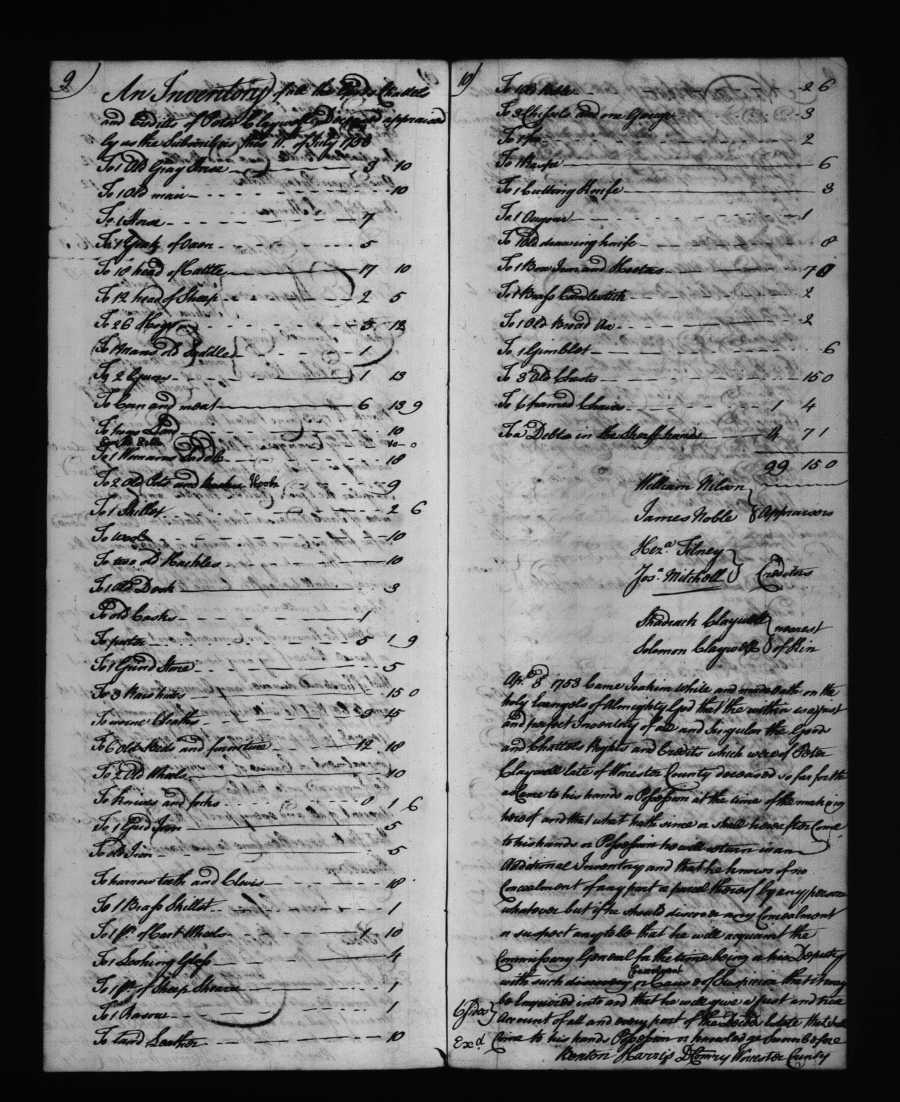 9
An Inventory of all the Goods Chattels
and Credits of Peter Claywell Deceased appraised
by us the Subscribers this 11th of July 1750
To 1 Old Gray Horse 3 10
To 1 Old mair 10
To 1 Horse 7
To 1 Yoak of Oxen 5
To 18 head of Cattle 17 10
To 12 head of Sheep 2 5
To 26 Hogs 5 12
To 1 Mans old Saddle 1
To 2 Guns 1 13
To Corn and meat 6 13 9
To 10
10 0
To 1 Womans Saddle 18
To 2 Old Pots and Hooks 9
To 1 Skillet 2 6
To wool 10
To two old Hackles 10
To 1 Old Desk 3
To old Casks 1
To puter 5 1 9
To 1 Grind Stone 5
To 3 Raw hides 15 0
To worne Cloaths 9 15
To 6 Old Beds and furniture 12 18
To 2 Old Wheels 10
To knives and forks 0 1 6
To 1 Grid Iron 5
To old Iron 5
To harrow teeth and Clevis 18
To 1 Brass Skillet 1
To 1 pr. of Cart Wheels 1 10
To 1 Looking Glass 4
To 1 pr. of Sheep Shears 1
To 1 Rasour 1
To land Leather 10
10
To 1 2 6
To 3 Chissels and one Gouge 3
To 1 2
To 1 Rasp 6
To 1 Cutting Knife 3
To 1 Augour 1
To 1 Old drawing knife 8
To 1 Box Iron and Heaters 7
To 1 Brass Candlestick 2
To 1 Old Broad Ax 2
To 1 Gimblet 6
To 3 Old Chests 15 0
To 6 framed Chairs 1 4
To a Debts in the Sheriff hands 4 7 1
99 15 0
William Nilson
James Noble } Appraisors
Heza. Tilney
Josa. Mitchell } Creditors
Shadrach Claywell } nearest
Solomon Claywell } of Kin
Apl. 8th 1753 Came Joakim White and made oath on the
holy Evangels of Almighty God that the within is a just
and perfect Inventory of all and Singular the Goods
and Chattels Rights and Credits which were of Peter
Claywell late of Worcester County deceased so far forth
as Came to his hands or Possession at the time of the making
hereof and that what hath since or shall hereafter Come
to his hands or Possession he will return in an
Additional Inventory and that he knows of no
Concealment of any part or parcel thereof by any person
whatever but if he should discover any Concealment
or suspect any to be that he will acquaint the
Commissary General for the time being or his Deputy
with such discovery or Cause of Suspicion that it may
be Enquired into and that he will give a just and true
6 sides} Account of all and every part of the Decd. Estate that shall
Exd. Come to his hands Possession or knowledge Sworn before
Benton Harris D Comry Worcester County